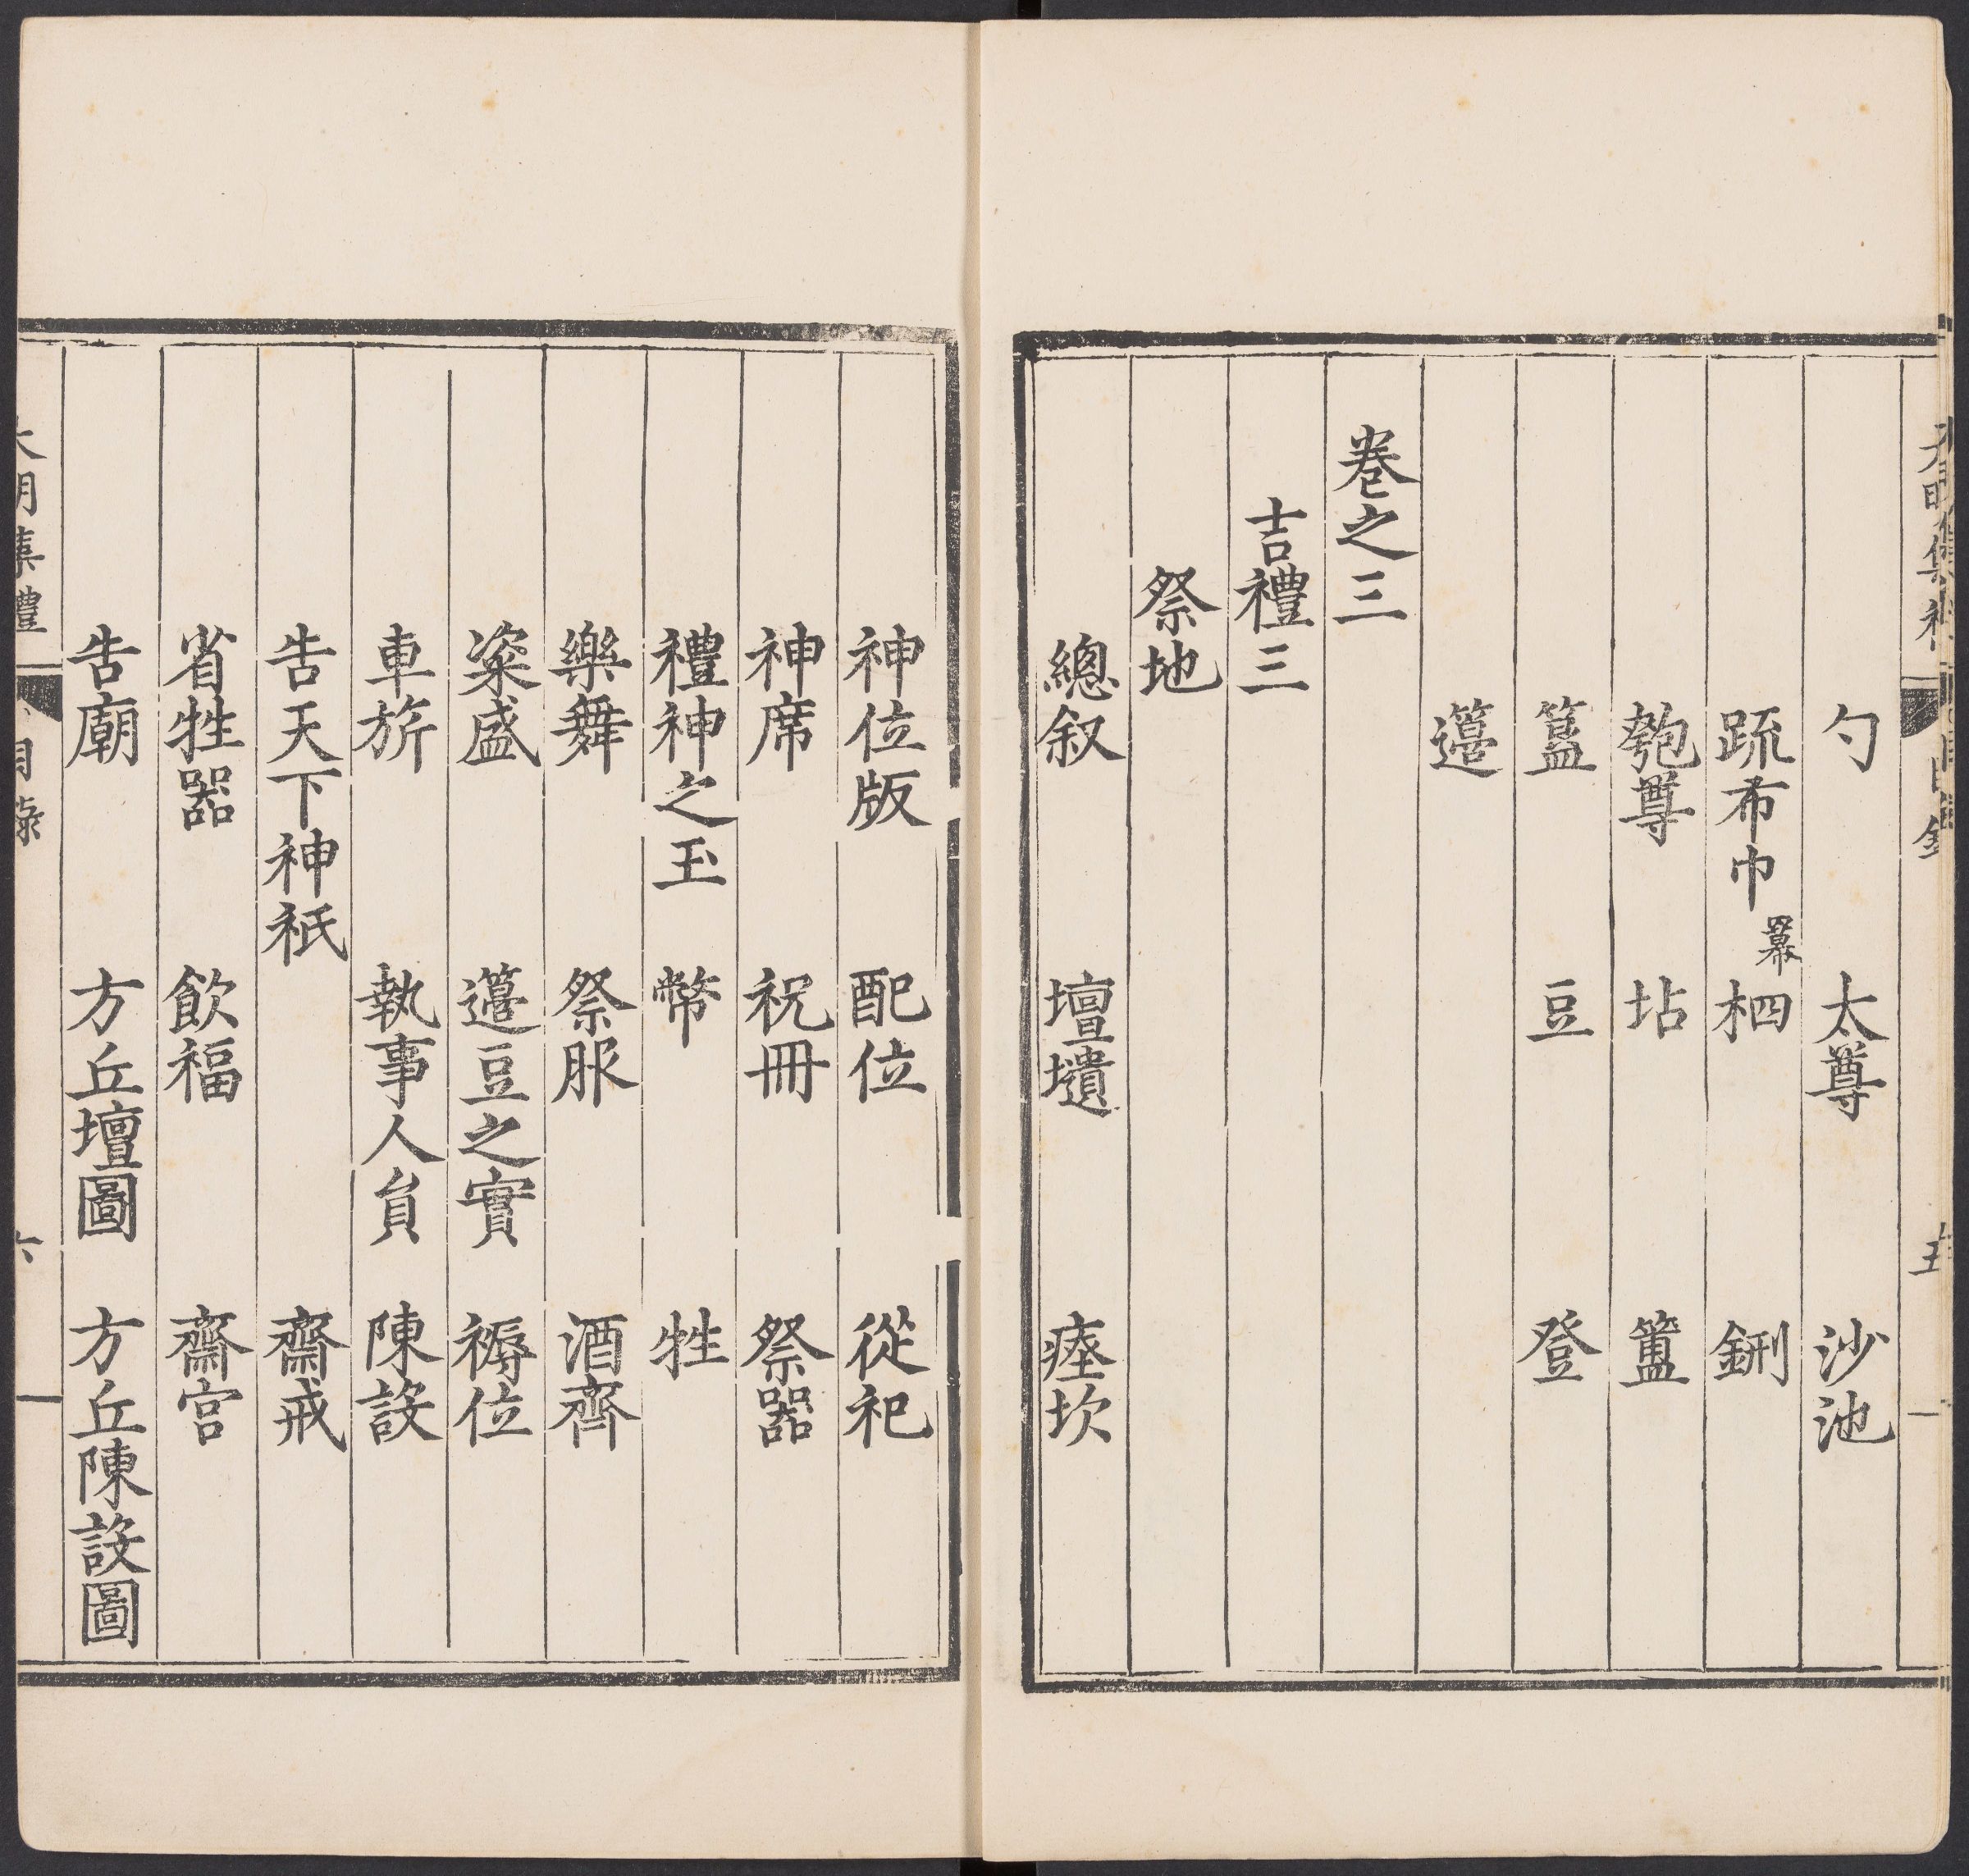 大明集禮 目錄 五
勺 太尊 沙池
疏布巾冪 柶 鉶
匏尊 坫 簠
簋 豆 登
籩
卷之三
吉禮三
祭地
總叙 壇壝 瘞坎
神位版 配位 從祀
神席 祝冊 祭器
禮神之玉 幣 牲
樂舞 祭服 酒齊
粢盛 籩豆之實 褥位
車旂 執事人負 陳設
告天下神祇 齋戒
省牲器 飲福 齋宮
告廟 方丘壇圖 方丘陳設圖
大明集禮 目錄 六